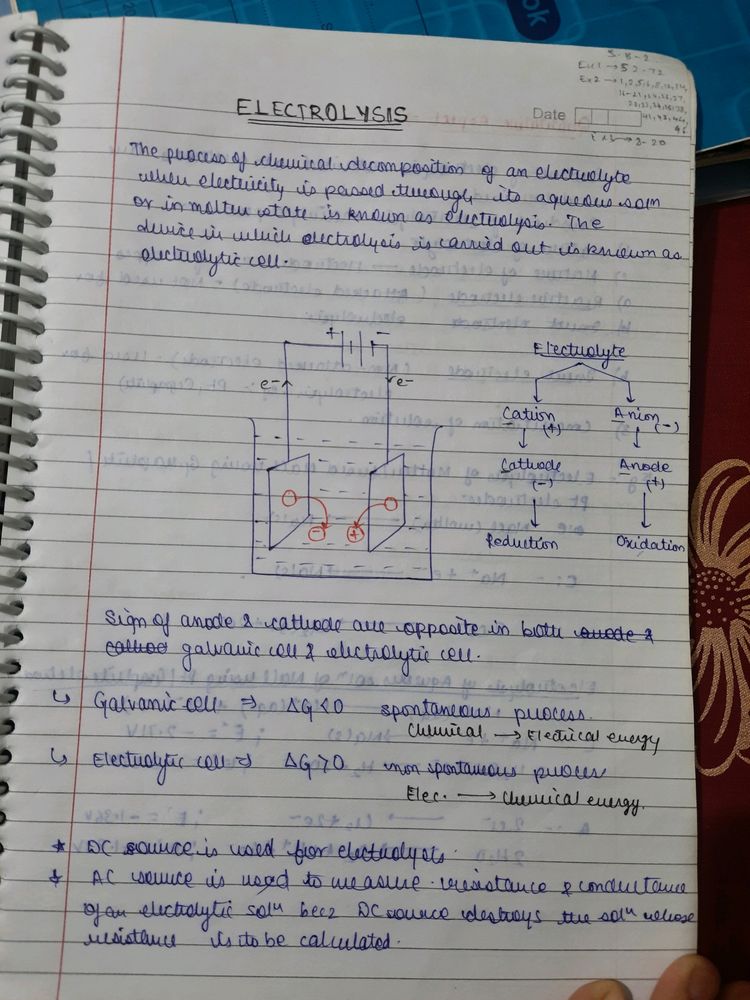 ok
5-8-2
Ex1 → 52-72
ELECTROLYSIS
Date
The process of chemical decomposition of an electrolyte
when electricity is passed through its aqueous soln
or in molten state is known as electrolysis. The
device in which electrolysis is carried out is known as
electrolytic cell.
+ −
e− e−
− +
Electrolyte
Cation (+) Anion (−)
Cathode (−) Anode (+)
Reduction Oxidation
Sign of anode & cathode are opposite in both anode &
cathod galvanic cell & electrolytic cell.
↳ Galvanic cell ⇒ ΔG<0 spontaneous process.
Chemical → Electrical energy
↳ Electrolytic cell ⇒ ΔG>0 non spontaneous process
Elec. → Chemical energy.
* DC source is used for electrolysis.
* AC source is used to measure resistance & conductance
of an electrolytic soln becz DC source destroys the soln whose
resistance is to be calculated.